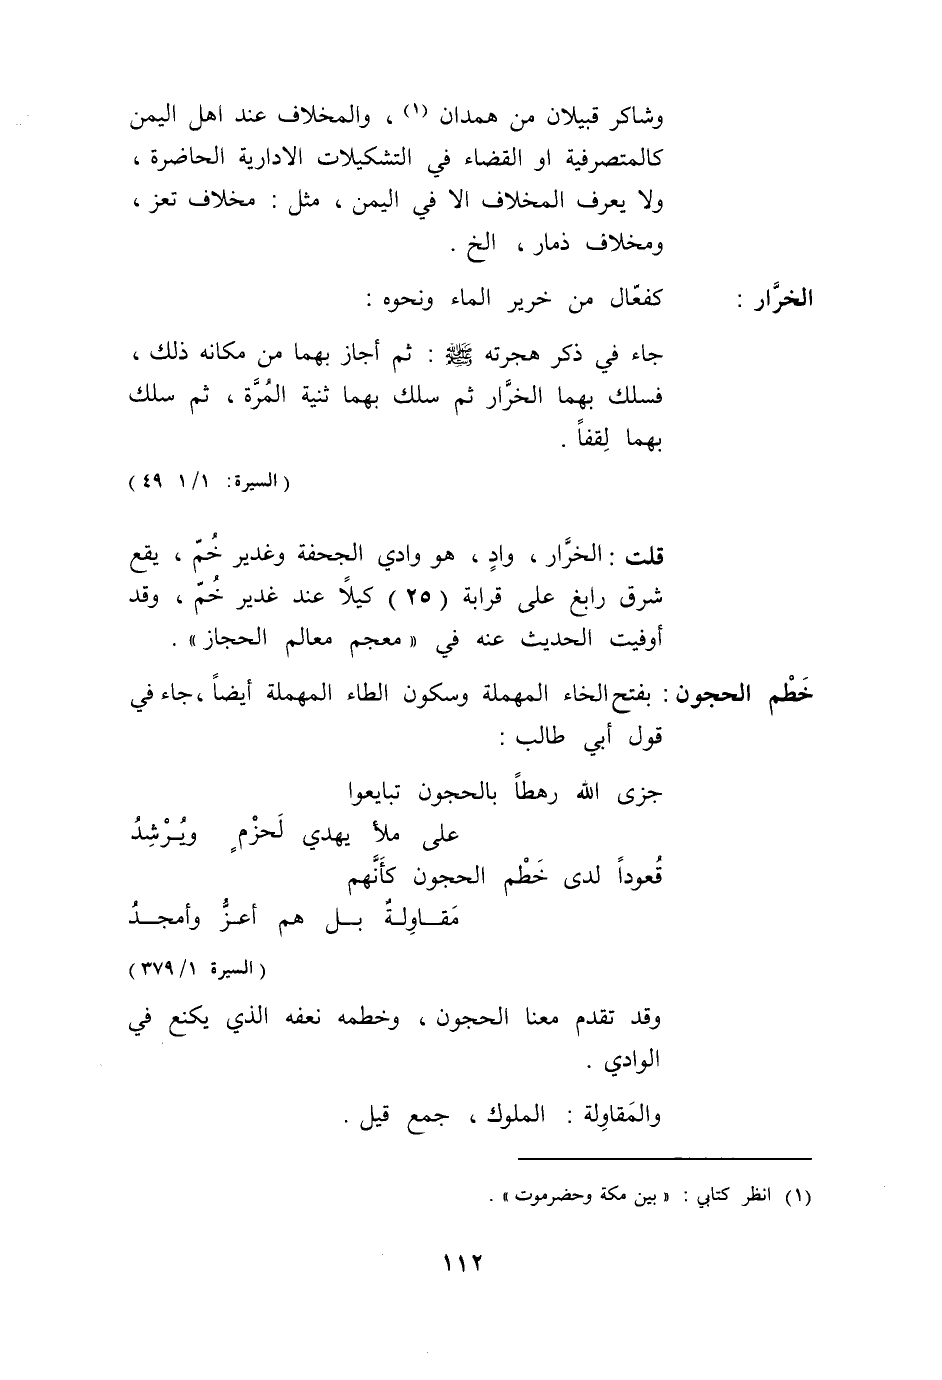 وشاكر قبيلان من همدان (١) ، والمخلاف عند اهل اليمن
كالمتصرفية او القضاء في التشكيلات الادارية الحاضرة ،
ولا يعرف المخلاف الا في اليمن ، مثل : مخلاف تعز ،
ومخلاف ذمار ، الخ .
الخرَّار : كفعّال من خرير الماء ونحوه :
جاء في ذكر هجرته ﷺ : ثم أجاز بهما من مكانه ذلك ،
فسلك بهما الخرَّار ثم سلك بهما ثنية المُرَّة ، ثم سلك
بهما لِقفاً .
( السيرة: ١/١ ٤٩ )
قلت : الخرَّار ، وادٍ ، هو وادي الجحفة وغدير خُمّ ، يقع
شرق رابغ على قرابة ( ٢٥ ) كيلًا عند غدير خُمّ ، وقد
أوفيت الحديث عنه في « معجم معالم الحجاز » .
خَطْم الحجون : بفتح الخاء المهملة وسكون الطاء المهملة أيضاً ، جاء في
قول أبي طالب :
جزى الله رهطاً بالحجون تبايعوا
على ملأ يهدي لَحزْمٍ ويُرْشِدُ
قُعوداً لدى خَطْم الحجون كأَنَّهم
مَقـاوِلةٌ بـل هم أعـزُّ وأمجـدُ
( السيرة ١/ ٣٧٩ )
وقد تقدم معنا الحجون ، وخطمه نعفه الذي يكنع في
الوادي .
والمَقاوِلة : الملوك ، جمع قيل .
(١) انظر كتابي : « بين مكة وحضرموت » .
١١٢